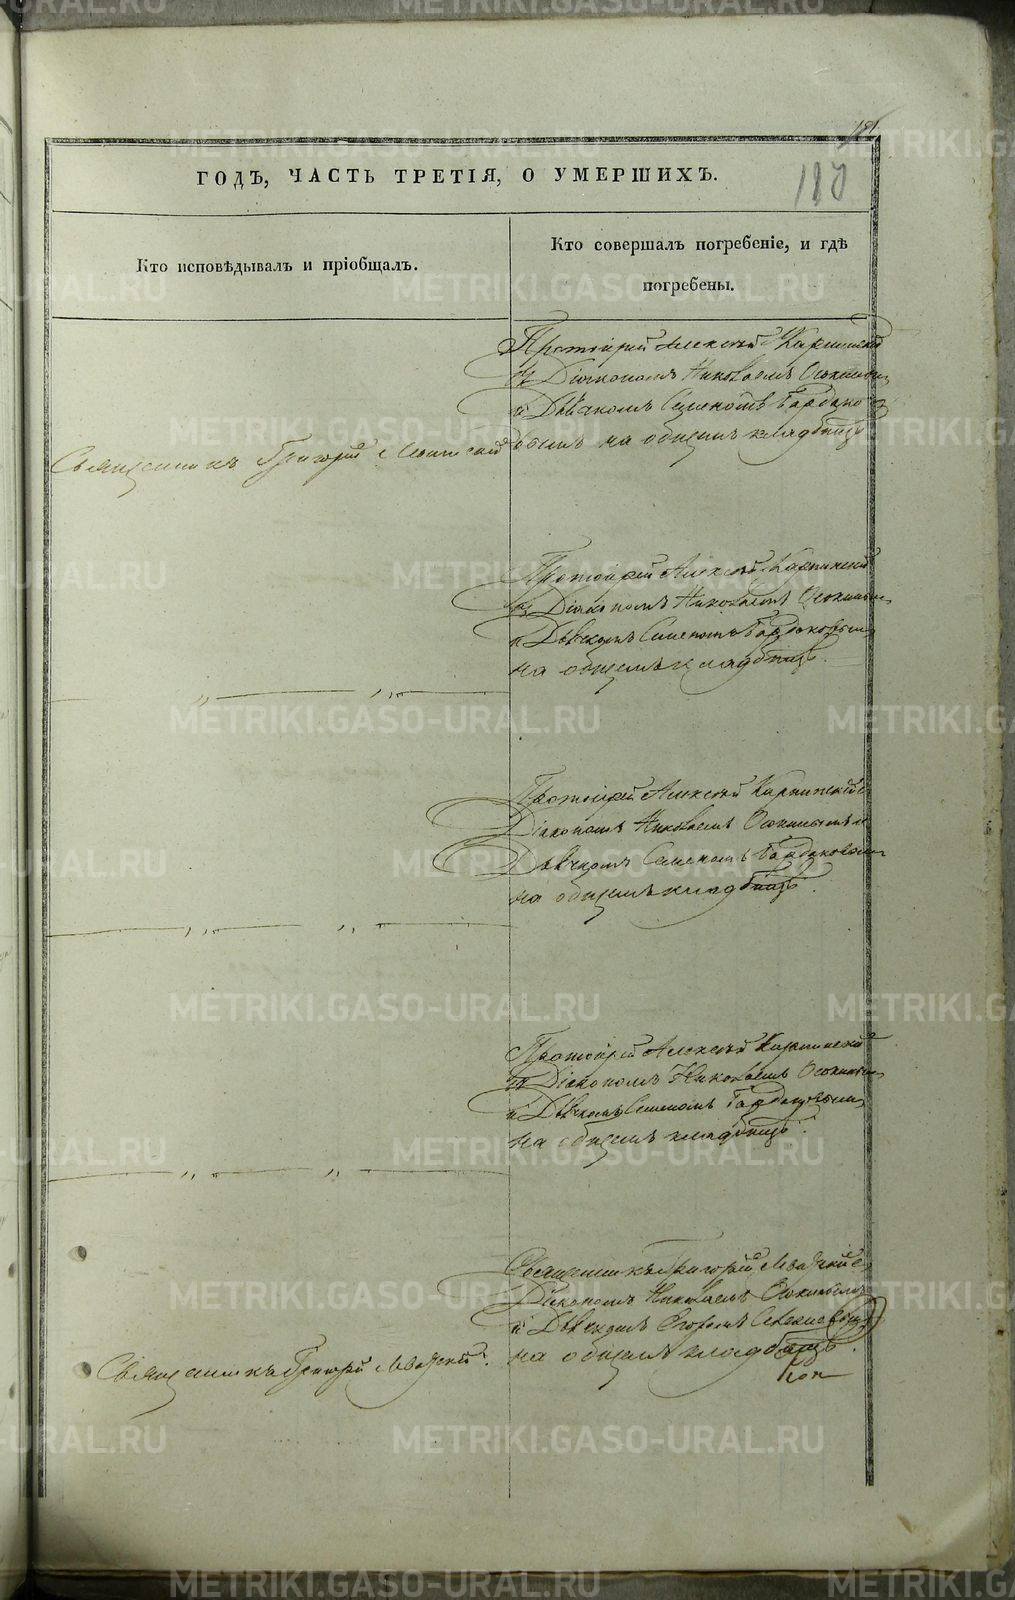 181
180
ГОДЪ, ЧАСТЬ ТРЕТІЯ, О УМЕРШИХЪ.
Кто исповѣдывалъ и пріобщалъ.
Кто совершалъ погребеніе, и гдѣ
погребены.
Протоіерей Алексѣй Карпинскій
съ Діакономъ Николаемъ Осокинымъ
и Дьячкомъ Семеномъ Бардако
вымъ на общемъ кладбищѣ
Священникъ Григорій
Протоіерей Алексѣй Карпинскій
съ Діакономъ Николаемъ Осокинымъ
и Дьячкомъ Семеномъ Бардаковымъ
на общемъ кладбищѣ.
— „ — „ —
Протоіерей Алексѣй Карпинскій съ
Діакономъ Николаемъ Осокинымъ и
Дьячкомъ Семеномъ Бардаковымъ
на общемъ кладбищѣ.
— „ — „ —
Протоіерей Алексѣй Карпинскій
съ Діакономъ Николаемъ Осокинымъ
и Дьячкомъ Семеномъ Бардаковымъ
на общемъ кладбищѣ.
— „ — „ —
Священникъ Григорій съ
Діакономъ Николаемъ Осокинымъ
и Дьячкомъ Егоромъ
на общемъ кладбищѣ.
Священникъ Григорій
METRIKI.GASO-URAL.RU